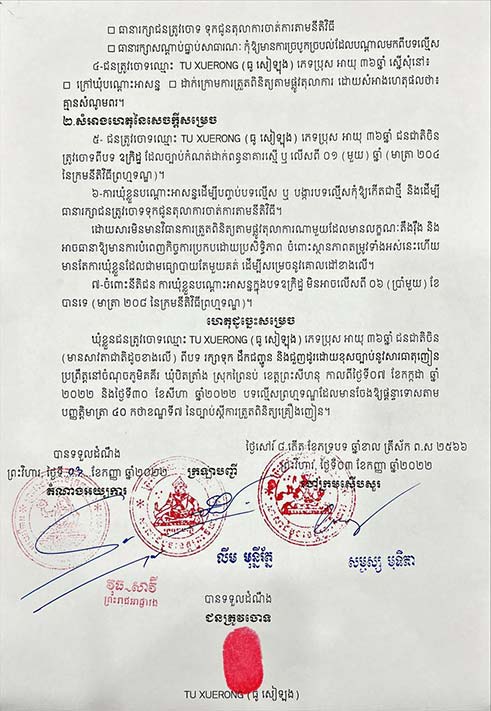 □ ធានារក្សាជនត្រូវចោទ ទុកជូនតុលាការចាត់ការតាមនីតិវិធី
□ ធានារក្សាសណ្តាប់ធ្នាប់សាធារណៈ កុំឱ្យមានការច្របូកច្របល់ដែលបណ្តាលមកពីបទល្មើស
៤-ជនត្រូវចោទឈ្មោះ TU XUERONG (ធូ សៀឡុង) ភេទប្រុស អាយុ ៣៦ឆ្នាំ ស្នើសុំនៅ៖
□ ក្រៅឃុំបណ្តោះអាសន្ន □ ដាក់ក្រោមការត្រួតពិនិត្យតាមផ្លូវតុលាការ ដោយសំអាងហេតុផលថា៖
គ្មានសំណូមពរ។
២.សំអាងហេតុនៃសេចក្តីសម្រេច
៥- ជនត្រូវចោទឈ្មោះ TU XUERONG (ធូ សៀឡុង) ភេទប្រុស អាយុ ៣៦ឆ្នាំ ជនជាតិចិន
ត្រូវចោទពីបទ ឧក្រិដ្ឋ ដែលច្បាប់កំណត់ដាក់ពន្ធនាគារស្មើ ឬ លើសពី ០១ (មួយ) ឆ្នាំ (មាត្រា ២០៤
នៃក្រមនីតិវិធីព្រហ្មទណ្ឌ)។
៦-ការឃុំខ្លួនបណ្តោះអាសន្នដើម្បីបញ្ចប់បទល្មើស ឬ បង្ការបទល្មើសកុំឱ្យកើតជាថ្មី និងដើម្បី
ធានារក្សាជនត្រូវចោទទុកជូនតុលាការចាត់ការតាមនីតិវិធី។
ដោយសារមិនមានវិធានការត្រួតពិនិត្យតាមផ្លូវតុលាការណាមួយដែលមានលក្ខណៈតឹងរ៉ឹង និង
អាចធានាឱ្យមានការបំពេញកិច្ចការប្រកបដោយប្រសិទ្ធិភាព ចំពោះស្ថានភាពតម្រូវទាំងអស់នេះហើយ
មានតែការឃុំខ្លួនដែលជាមធ្យោបាយតែមួយគត់ ដើម្បីសម្រេចនូវគោលដៅខាងលើ។
៧-ចំពោះនីតិជន ការឃុំខ្លួនបណ្តោះអាសន្នក្នុងបទឧក្រិដ្ឋ មិនអាចលើសពី ០៦ (ប្រាំមួយ) ខែ
បានទេ (មាត្រា ២០៨ នៃក្រមនីតិវិធីព្រហ្មទណ្ឌ)។
ហេតុដូច្នេះសម្រេច
ឃុំខ្លួនជនត្រូវចោទឈ្មោះ TU XUERONG (ធូ សៀឡុង) ភេទប្រុស អាយុ ៣៦ឆ្នាំ ជនជាតិចិន
(មានសាវតាជាតិដូចខាងលើ) ពីបទ រក្សាទុក ដឹកជញ្ជូន និងជួញដូរដោយខុសច្បាប់នូវសារធាតុញៀន
ប្រព្រឹត្តនៅចំណុចភូមិគគីរ ឃុំបិតត្រាំង ស្រុកព្រៃនប់ ខេត្តព្រះសីហនុ កាលពីថ្ងៃទី០៧ ខែកក្កដា ឆ្នាំ
២០២២ និងថ្ងៃទី៣០ ខែសីហា ឆ្នាំ២០២២ បទល្មើសព្រហ្មទណ្ឌដែលមានចែងឱ្យផ្តន្ទាទោសតាម
បញ្ញត្តិមាត្រា ៤០ កថាខណ្ឌទី៧ នៃច្បាប់ស្តីពីការត្រួតពិនិត្យគ្រឿងញៀន។
ថ្ងៃសៅរ៍ ៨.កើត ខែភទ្របទ ឆ្នាំខាល ត្រីស័ក ព.ស ២៥៦៦
បានទទួលដំណឹង
ព្រះវិហារ, ថ្ងៃទី០៣ ខែកញ្ញា ឆ្នាំ២០២២
ព្រះវិហារ, ថ្ងៃទី ខែកញ្ញា ឆ្នាំ២០២២
តំណាងអយ្យការ
ក្រឡាបញ្ជី
ចៅក្រមស៊ើបសួរ
លឹម មុន្នីរ័ត្ន
សម្ផស្ស មុទិតា
វុធ សាវី
ព្រះរាជអាជ្ញារង
បានទទួលដំណឹង
ជនត្រូវចោទ
TU XUERONG (ធូ សៀឡុង)